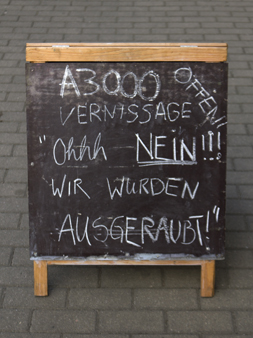 A3000 OFFEN!
VERNISSAGE
"Ohhh NEIN!!!
WIR WURDEN
AUSGERAUBT!"